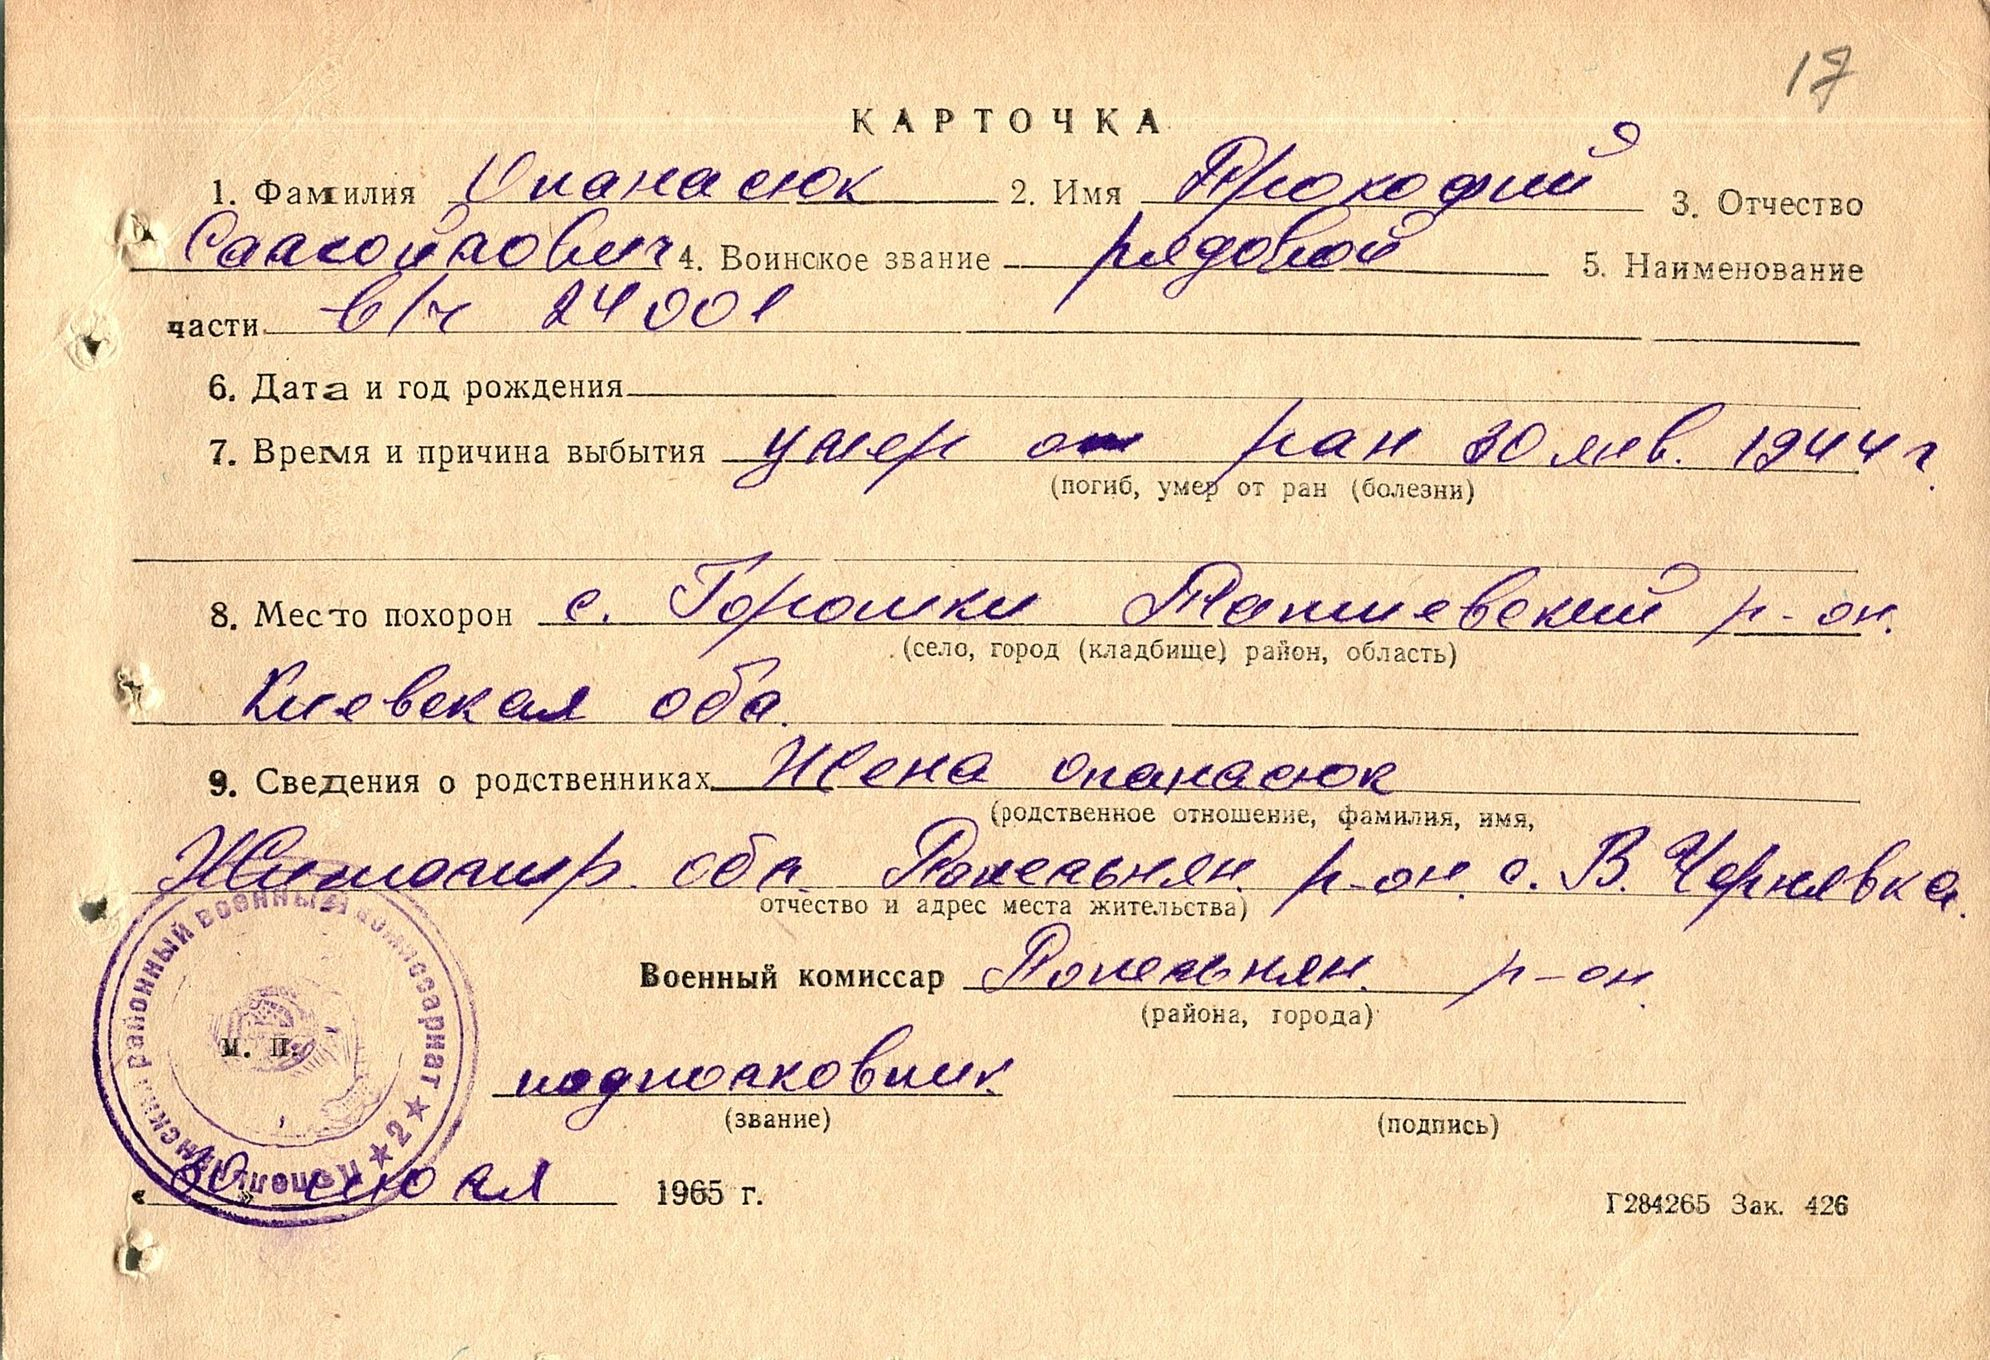 17
КАРТОЧКА
1. Фамилия Опанасюк 2. Имя Прокофий 3. Отчество
4. Воинское звание рядовой 5. Наименование
части в/ч 24001
6. Дата и год рождения
7. Время и причина выбытия умер от ран 30 янв. 1944 г.
(погиб, умер от ран (болезни)
8. Место похорон с. Горошки Тащевский р-он.
(село, город (кладбище) район, область)
Киевская обл.
9. Сведения о родственниках Жена Опанасюк
(родственное отношение, фамилия, имя,
Житомир. обл. Попельнян. р-он. с. В. Чернявка.
отчество и адрес места жительства)
Военный комиссар Попельнян. р-он.
(района, города)
м. п.
подполковник
(звание) (подпись)
«30» июля 1965 г.
Г284265 Зак. 426
районный военный комиссариат ★ 2 ★